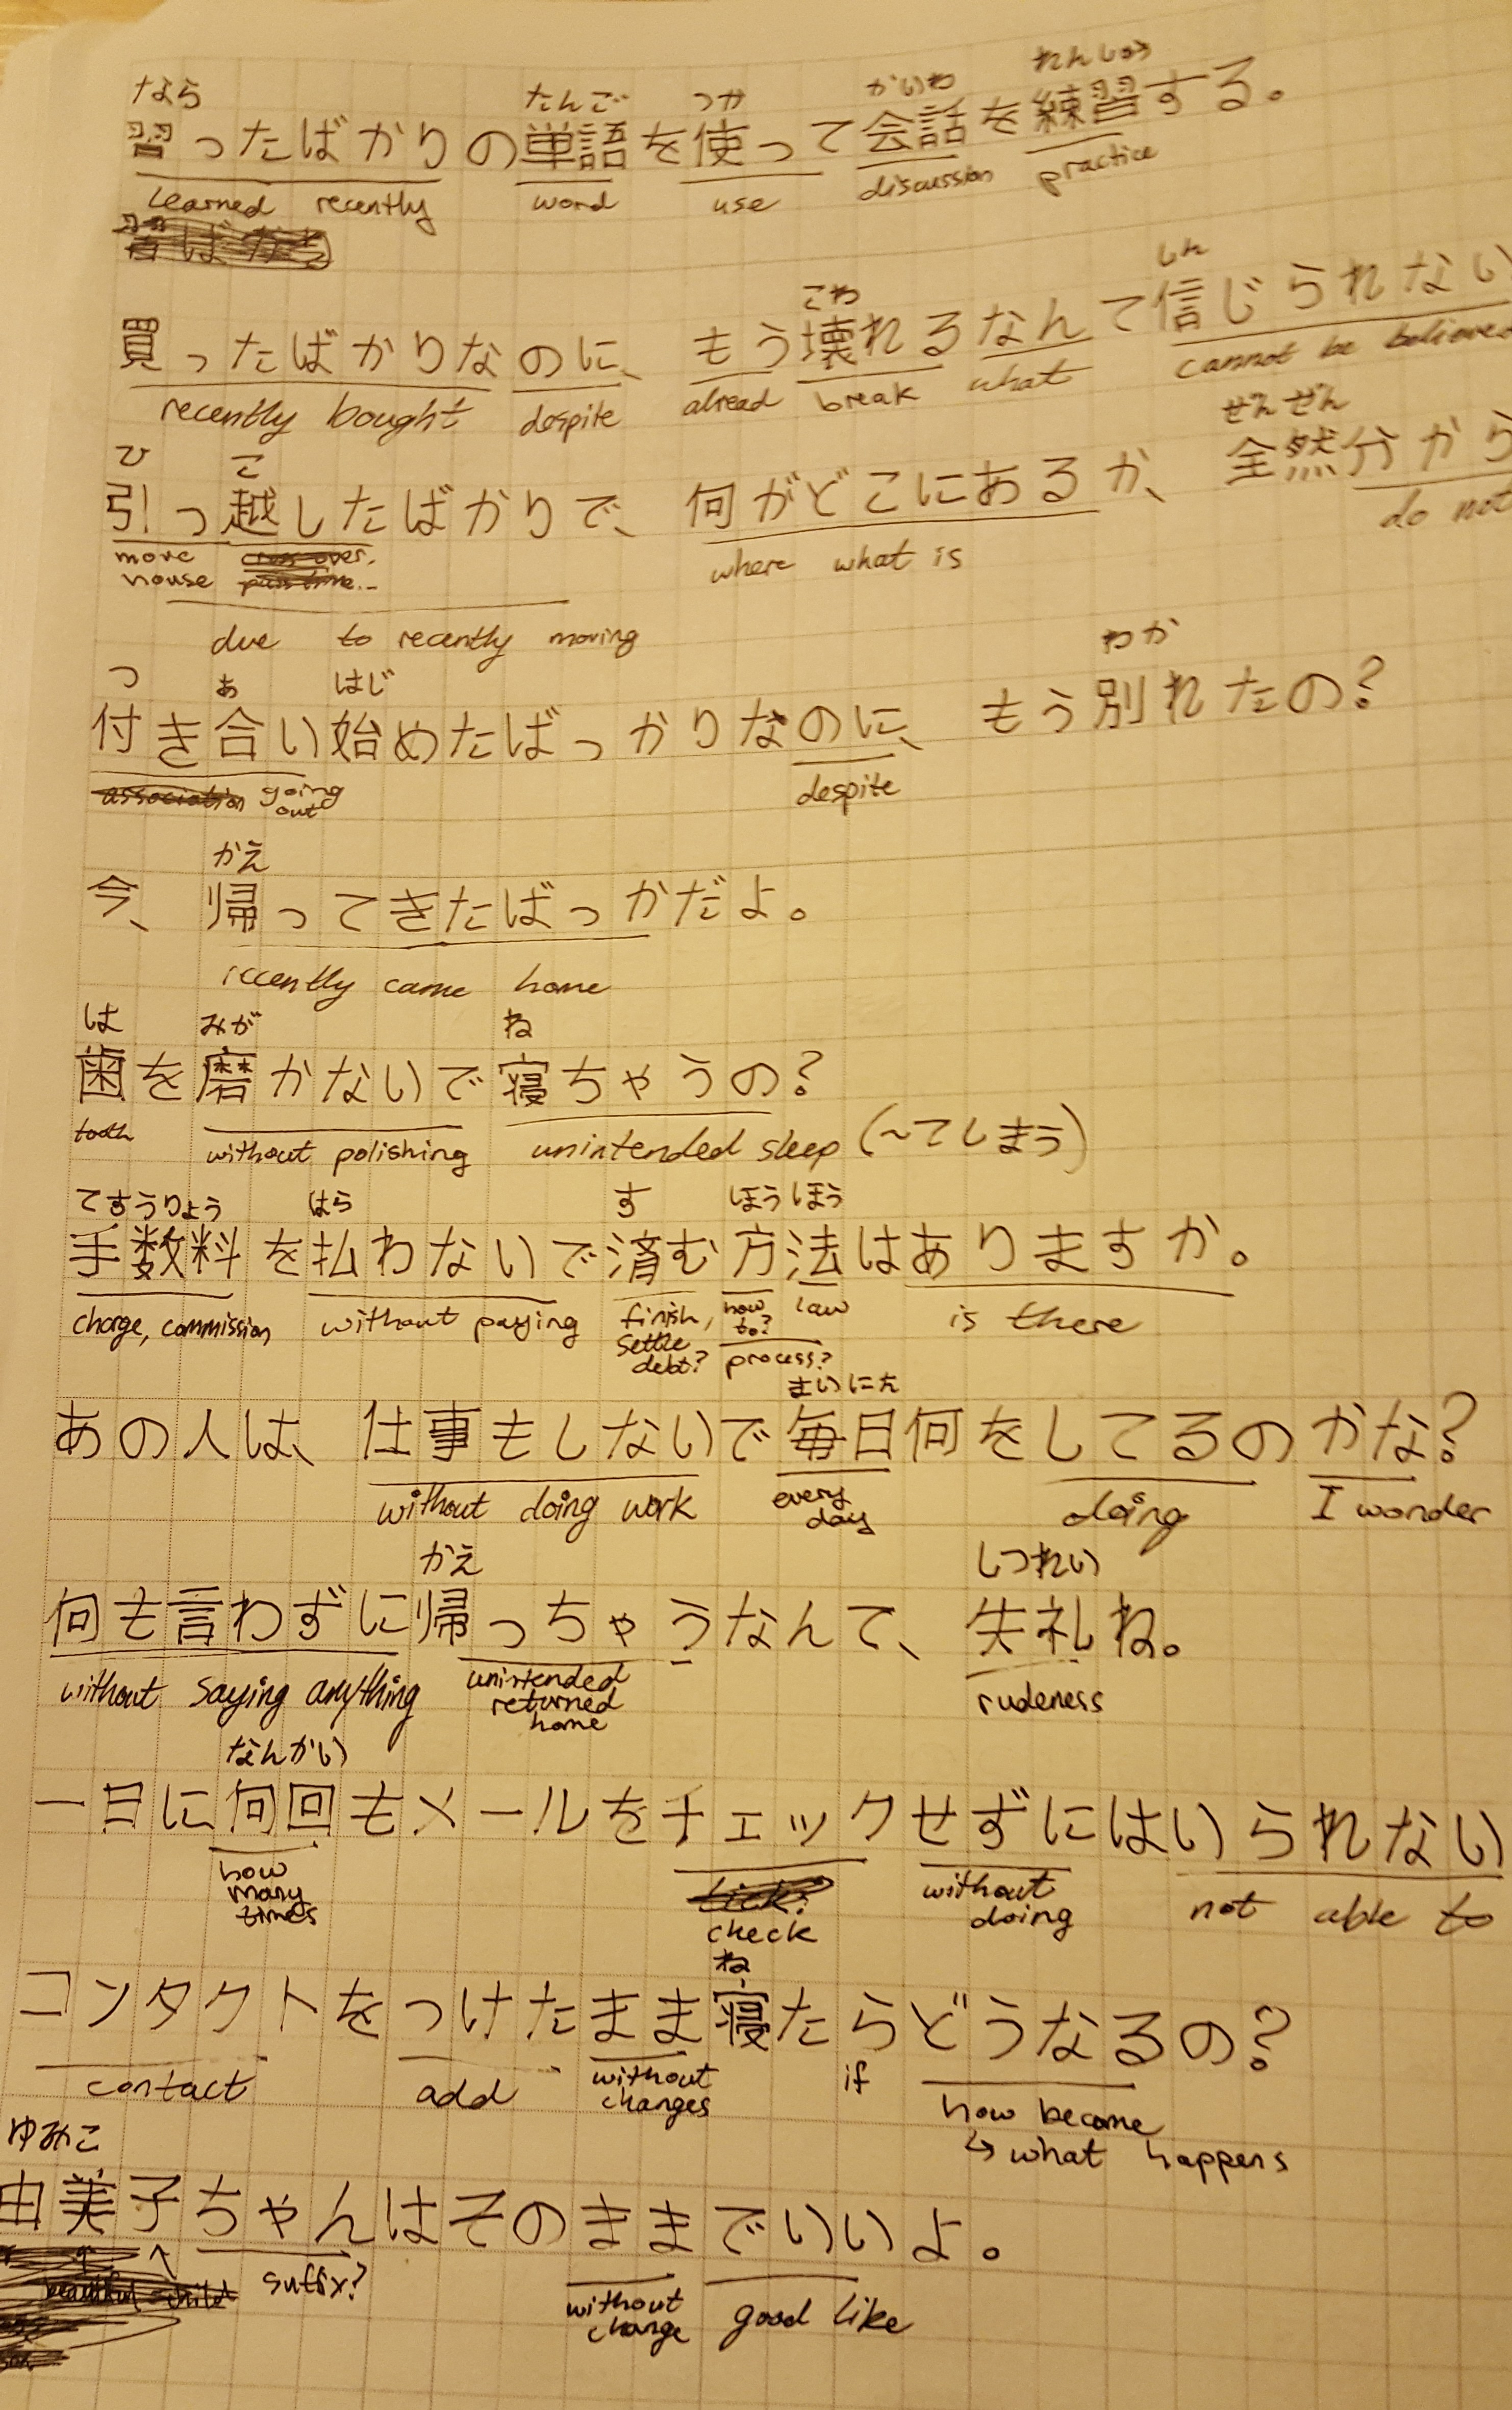 なら たんご つか かいわ れんしゅう
習ったばかりの単語を使って会話を練習する。
Learned recently word use discussion practice
こわ しん
買ったばかりなのに、もう壊れるなんて信じられない
recently bought despite alread break what cannot be believed
ひ こ ぜんぜん
引っ越したばかりで、何がどこにあるか、全然分から
move where what is do not
house
due to recently moving
つ あ はじ わか
付き合い始めたばっかりなのに、もう別れたの?
association going despite
out
かえ
今、帰ってきたばっかだよ。
recently came home
は みが ね
歯を磨かないで寝ちゃうの?
tooth without polishing unintended sleep (~てしまう)
てすうりょう はら す ほうほう
手数料を払わないで済む方法はありますか。
charge, commission without paying finish, how law is there
settle to?
debt? process?
まいにち
あの人は、仕事もしないで毎日何をしてるのかな?
without doing work every doing I wonder
day
かえ しつれい
何も言わずに帰っちゃうなんて、失礼ね。
without saying anything unintended rudeness
returned
home
なんかい
一日に何回もメールをチェックせずにはいられない
how without not able to
many doing
times check
ね
コンタクトをつけたまま寝たらどうなるの?
contact add without if how become
changes ↳ what happens
ゆみこ
由美子ちゃんはそのままでいいよ。
suffix? without good like
change